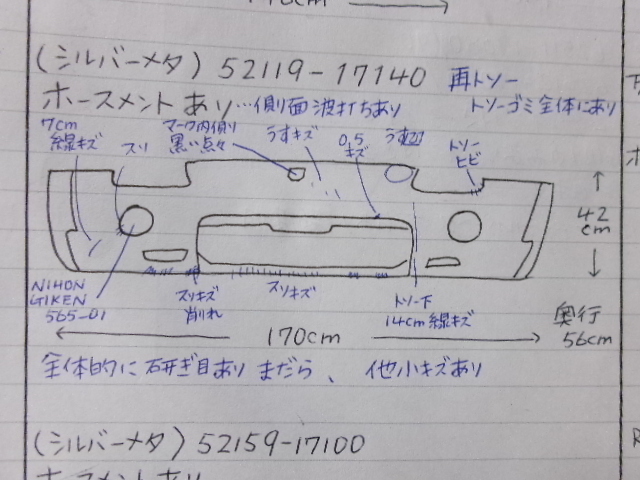 (シルバーメタ) 52119-17140 再トソー
ホースメントあり…側面波打ちあり トソーゴミ全体にあり
7cm
線キズ
スリ
マーク内側り
黒い点々
うすキズ
0.5
キズ
うす凹
トソー
ヒビ
42
cm
NIHON
GIKEN
565-01
スリキズ
削れ
スリキズ
トソー下
14cm線キズ
170cm
奥行
56cm
全体的に研ぎ目あり まだら、他小キズあり
(シルバーメタ) 52159-17100
ホースメントあり